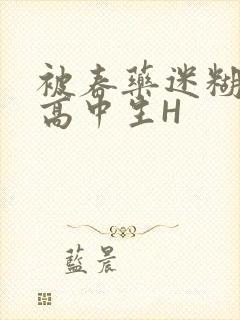 被春药迷糊
高中生H
蓝晨